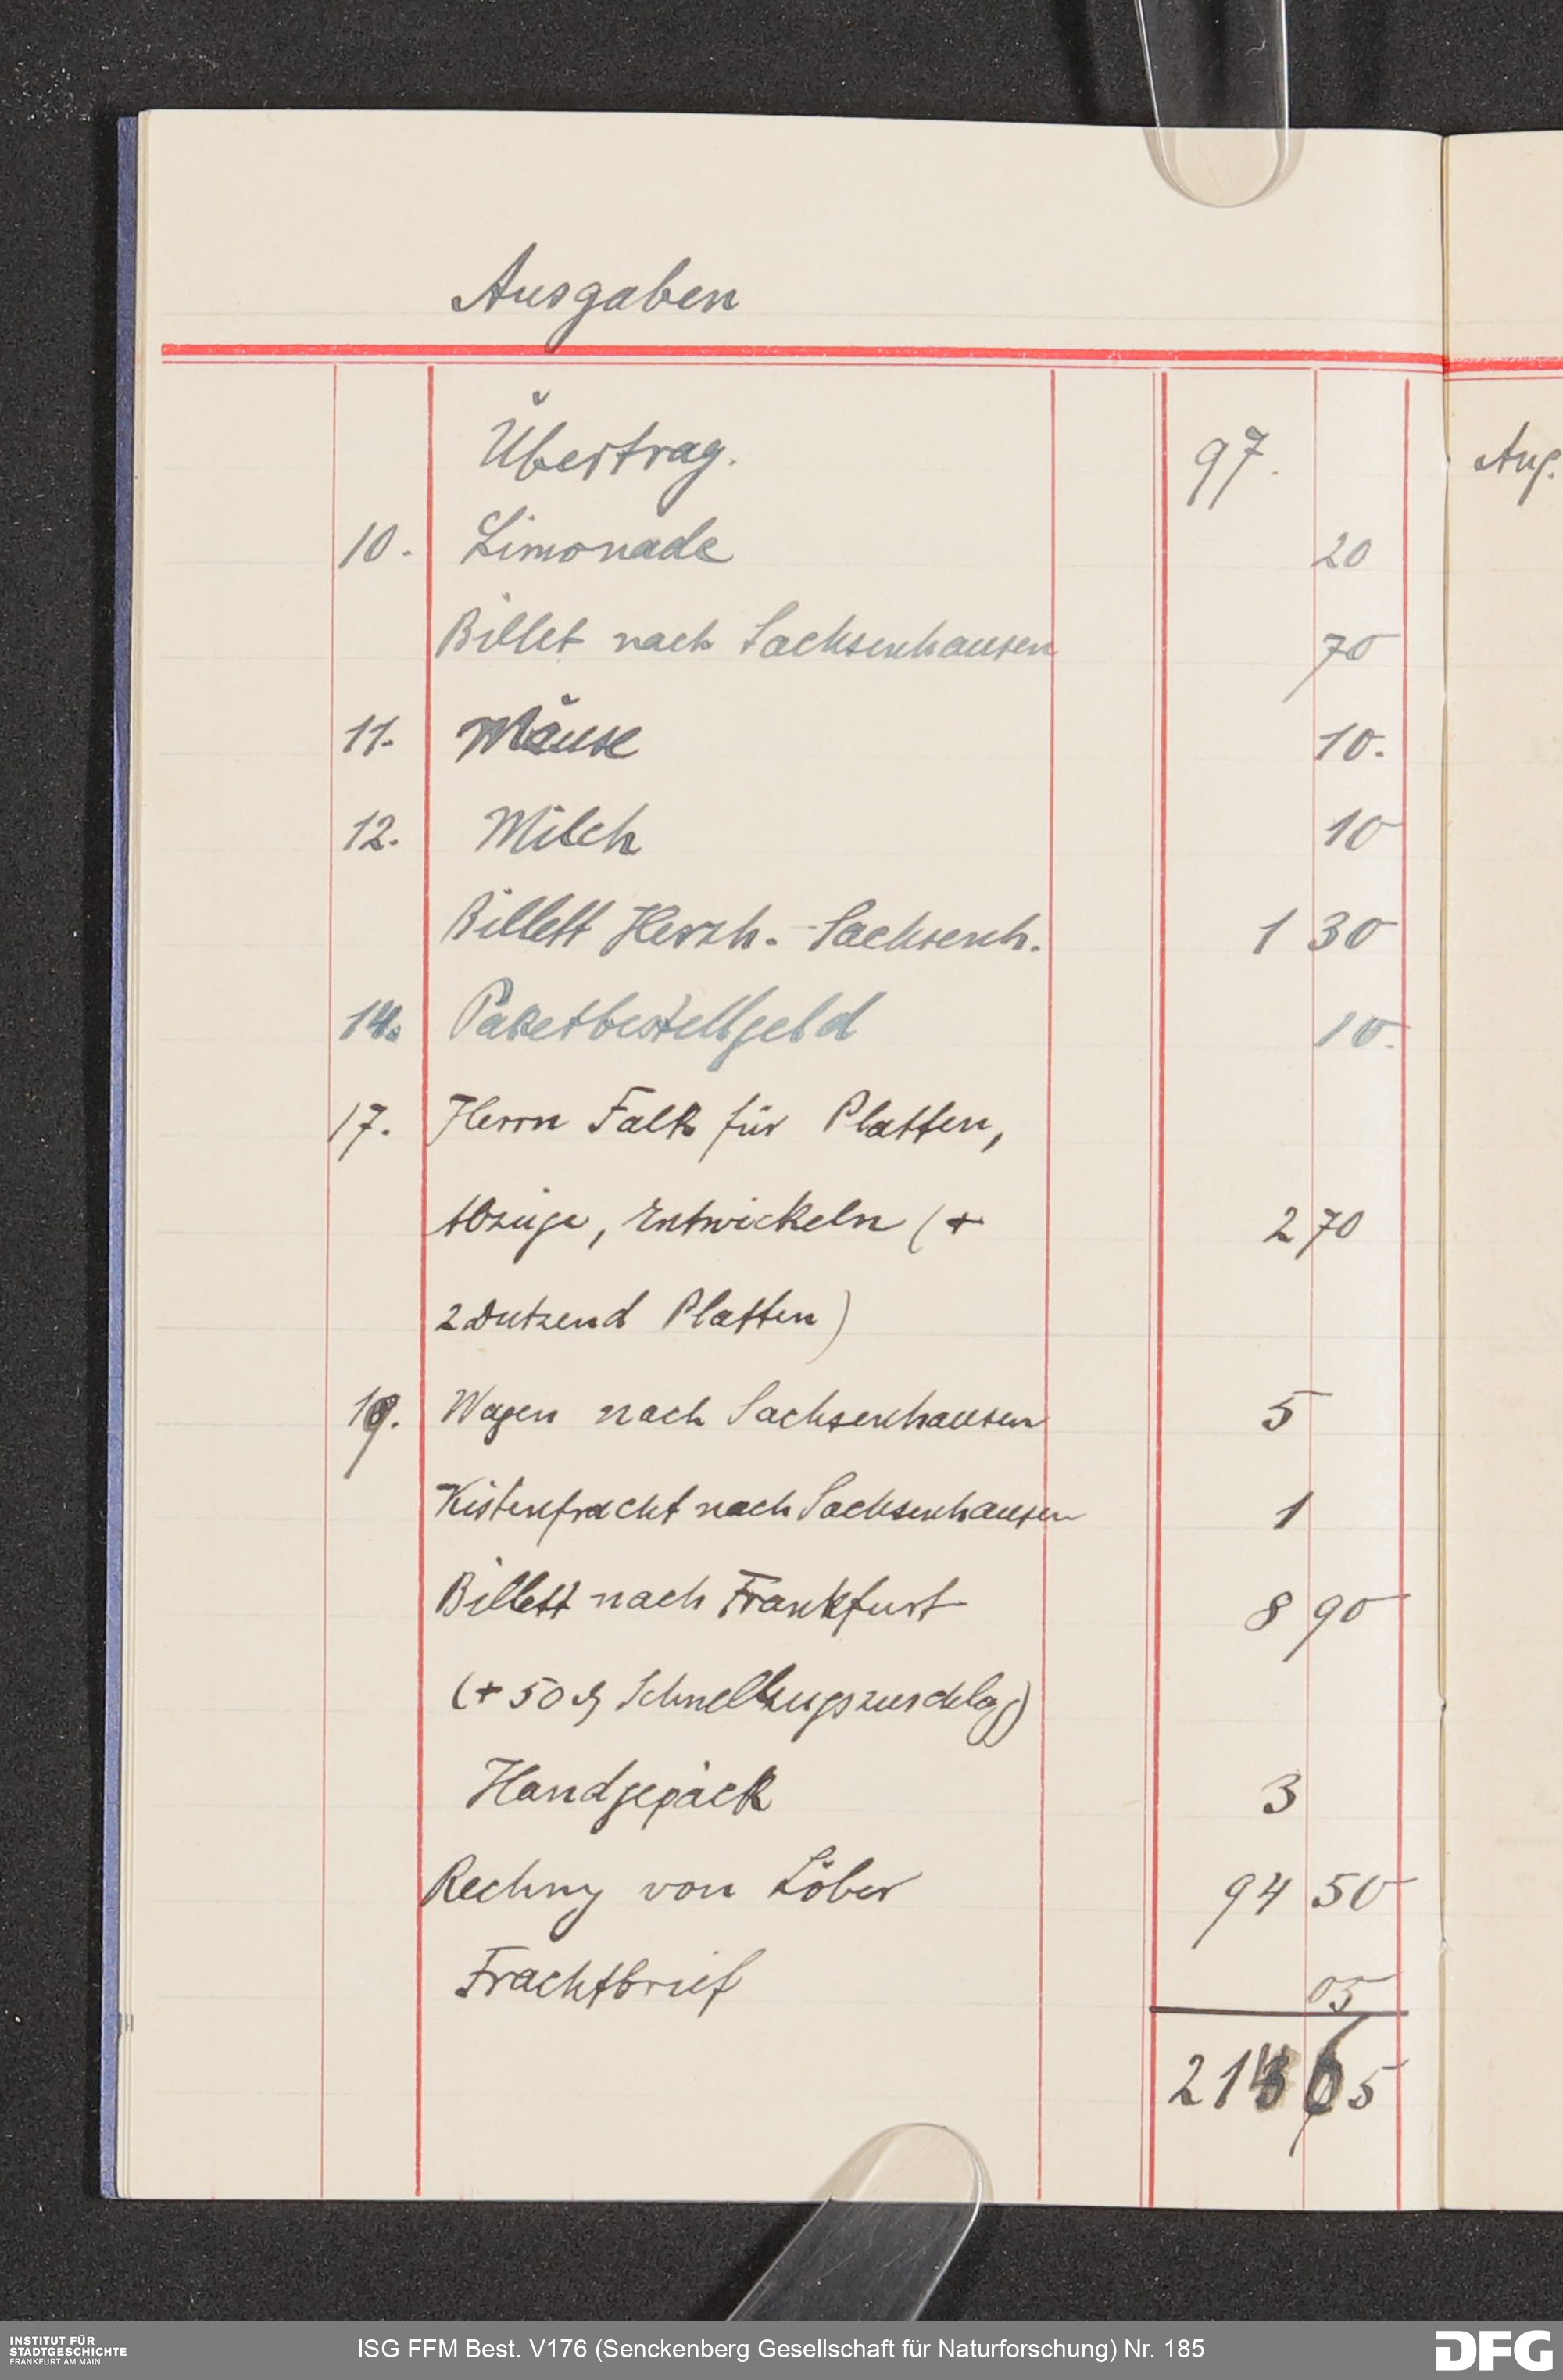 Ausgaben
Übertrag. 97.
10. Limonade 20
Billet nach Sachsenhausen 70
11. Mäuse 10.
12. Milch 10
Billett Herzh. - Sachsenh. 1 30
14. Paketbestellgeld 10.
17. Herrn Falk für Platten,
Abzüge, Entwickeln (+ 2 70
2 Dutzend Platten)
19. Wagen nach Sachsenhausen 5
Kistenfracht nach Sachsenhausen 1
Billett nach Frankfurt 8 90
(+ 50 ₰ Schnellzugszuschlag)
Handgepäck 3
Rechng von Löber 94 50
Frachtbrief 05
214 65
Aug.
INSTITUT FÜR
STADTGESCHICHTE
FRANKFURT AM MAIN
ISG FFM Best. V176 (Senckenberg Gesellschaft für Naturforschung) Nr. 185
DFG